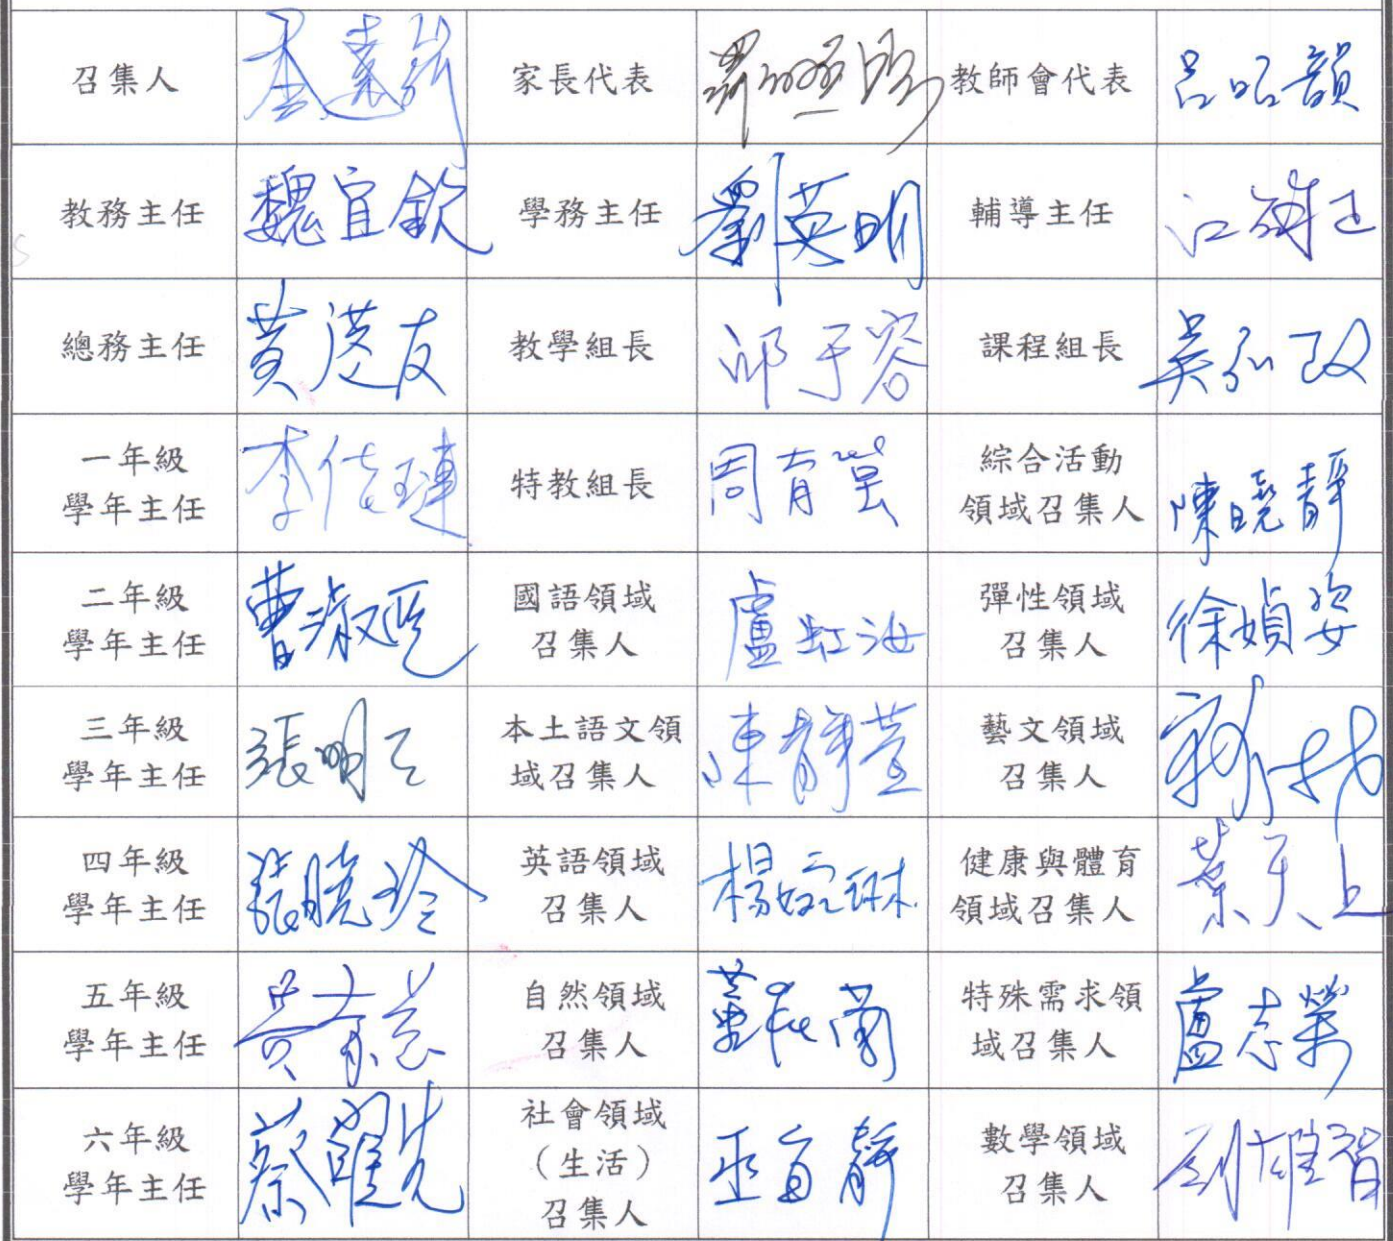 召集人
家長代表
教師會代表 呂昭韻
教務主任 魏宜欽
學務主任 劉英明
輔導主任 江
總務主任 黃 友
教學組長 邱于容
課程組長 吳弘政
一年級
學年主任 李佳璉
特教組長 周育
綜合活動
領域召集人 陳曉靜
二年級
學年主任 曹淑
國語領域
召集人 盧虹汝
彈性領域
召集人 徐媜姿
三年級
學年主任 張明
本土語文領
域召集人 陳靜萱
藝文領域
召集人
四年級
學年主任 張曉玲
英語領域
召集人 楊婉琳
健康與體育
領域召集人 葉天上
五年級
學年主任
自然領域
召集人 蘭
特殊需求領
域召集人 盧志榮
六年級
學年主任 蔡曜先
社會領域
（生活）
召集人 巫 靜
數學領域
召集人 劉雄智